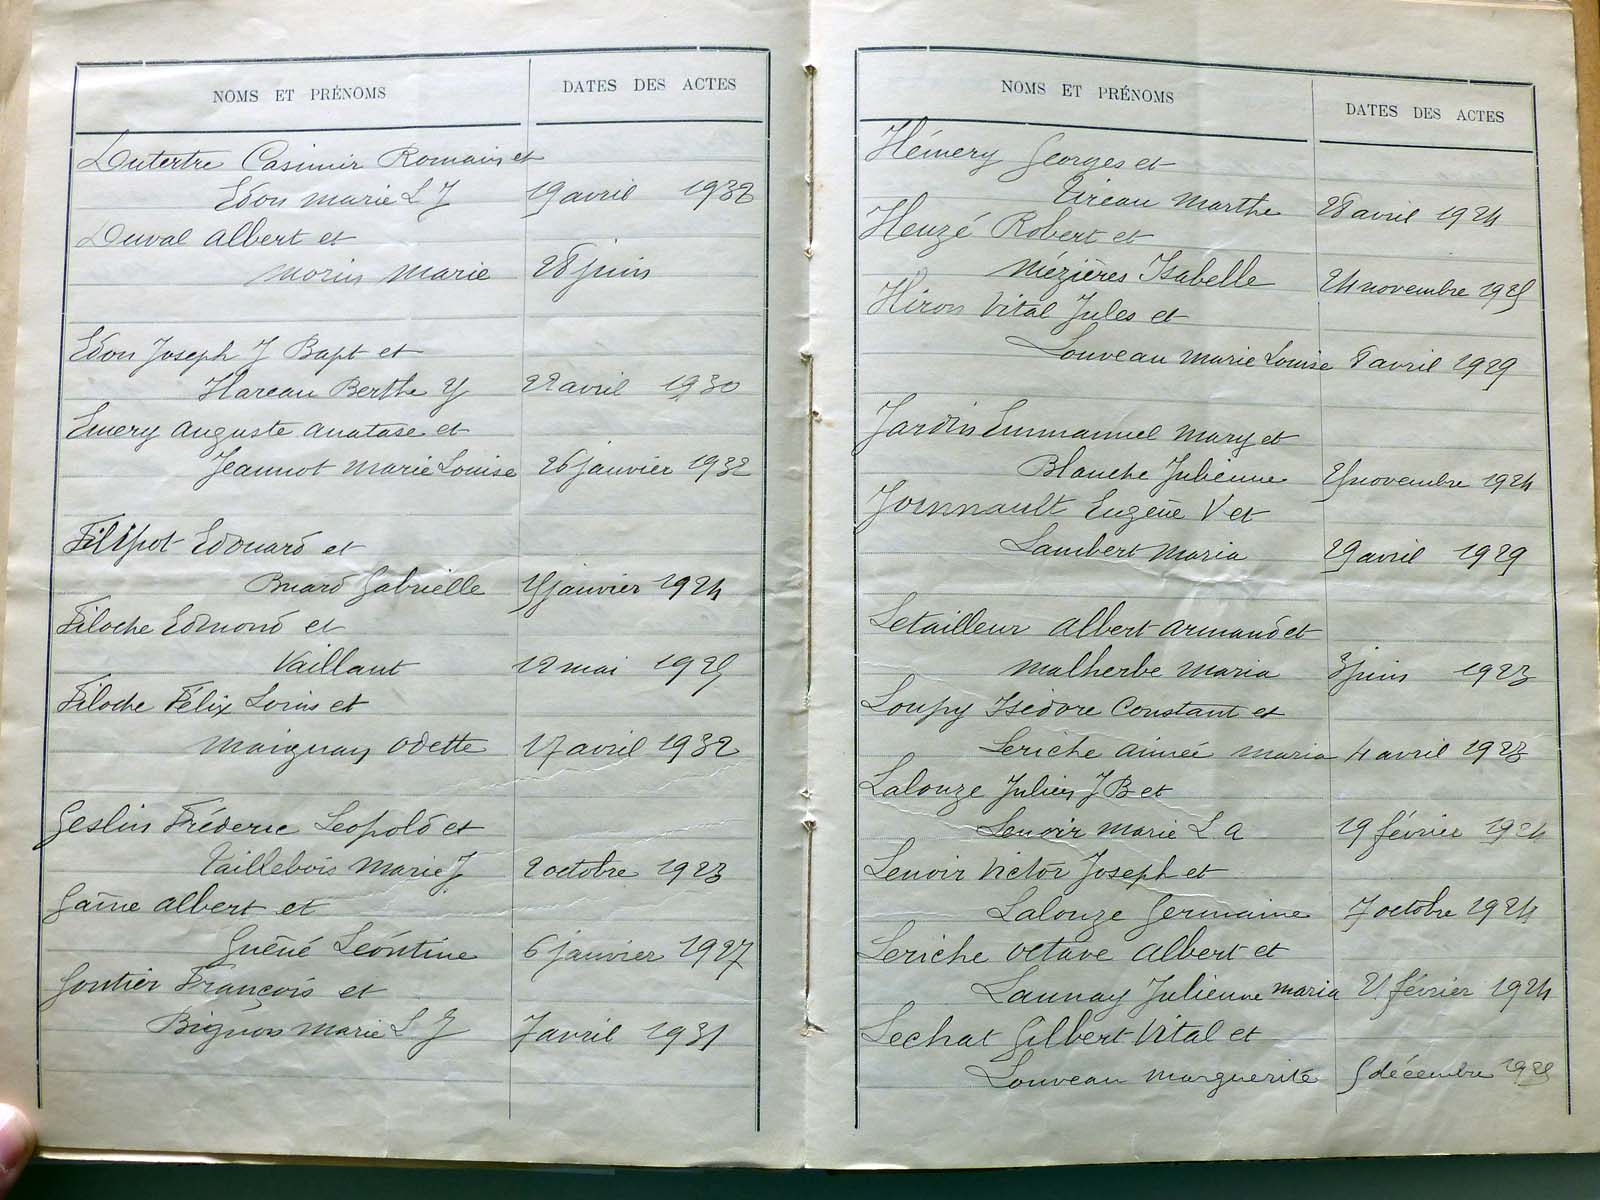 NOMS ET PRÉNOMS DATES DES ACTES
Dutertre Casimir Romain et
Edon Marie L J 19 avril 1932
Duval Albert et
Morin Marie 28 juin
Edon Joseph J Bapt et
Hareau Berthe Y 22 avril 1930
Emery Auguste Anatase et
Jeannot Marie Louise 26 janvier 1932
Filipot Edouard et
Buard Gabrielle janvier 1924
Filoche Edmond et
Vaillant 12 mai 1925
Filoche Félix Louis et
Maignan Odette 17 avril 1932
Geslin Fréderic Leopold et
Taillebois Marie J 2 octobre 1923
Gaîne Albert et
Guéné Léontine 6 janvier 1927
Gontier François et
Bignon Marie L J 7 avril 1931
NOMS ET PRÉNOMS DATES DES ACTES
Hémery Georges et
Tireau Marthe 28 avril 1924
Heuzé Robert et
Mézières Isabelle 24 novembre 1925
Hiron Vital Jules et
Louveau Marie Louise 8 avril 1929
Jardin Emmanuel Mary et
Blanche Julienne novembre 1924
Eugène V et
Lambert Maria 29 avril 1929
Letailleur Albert Armand et
Malherbe Maria 3 juin 1923
Loupy Isédore Constant et
Leriche Aimée Maria 4 avril 1923
Lalouze Julien J B et
Lenoir Marie L A 19 février 1924
Lenoir Victor Joseph et
Lalouze Germaine 7 octobre 1924
Leriche Octave Albert et
Launay Julienne Maria 21 février 1924
Lechat Gilbert Vital et
Louveau Marguerite 5 décembre